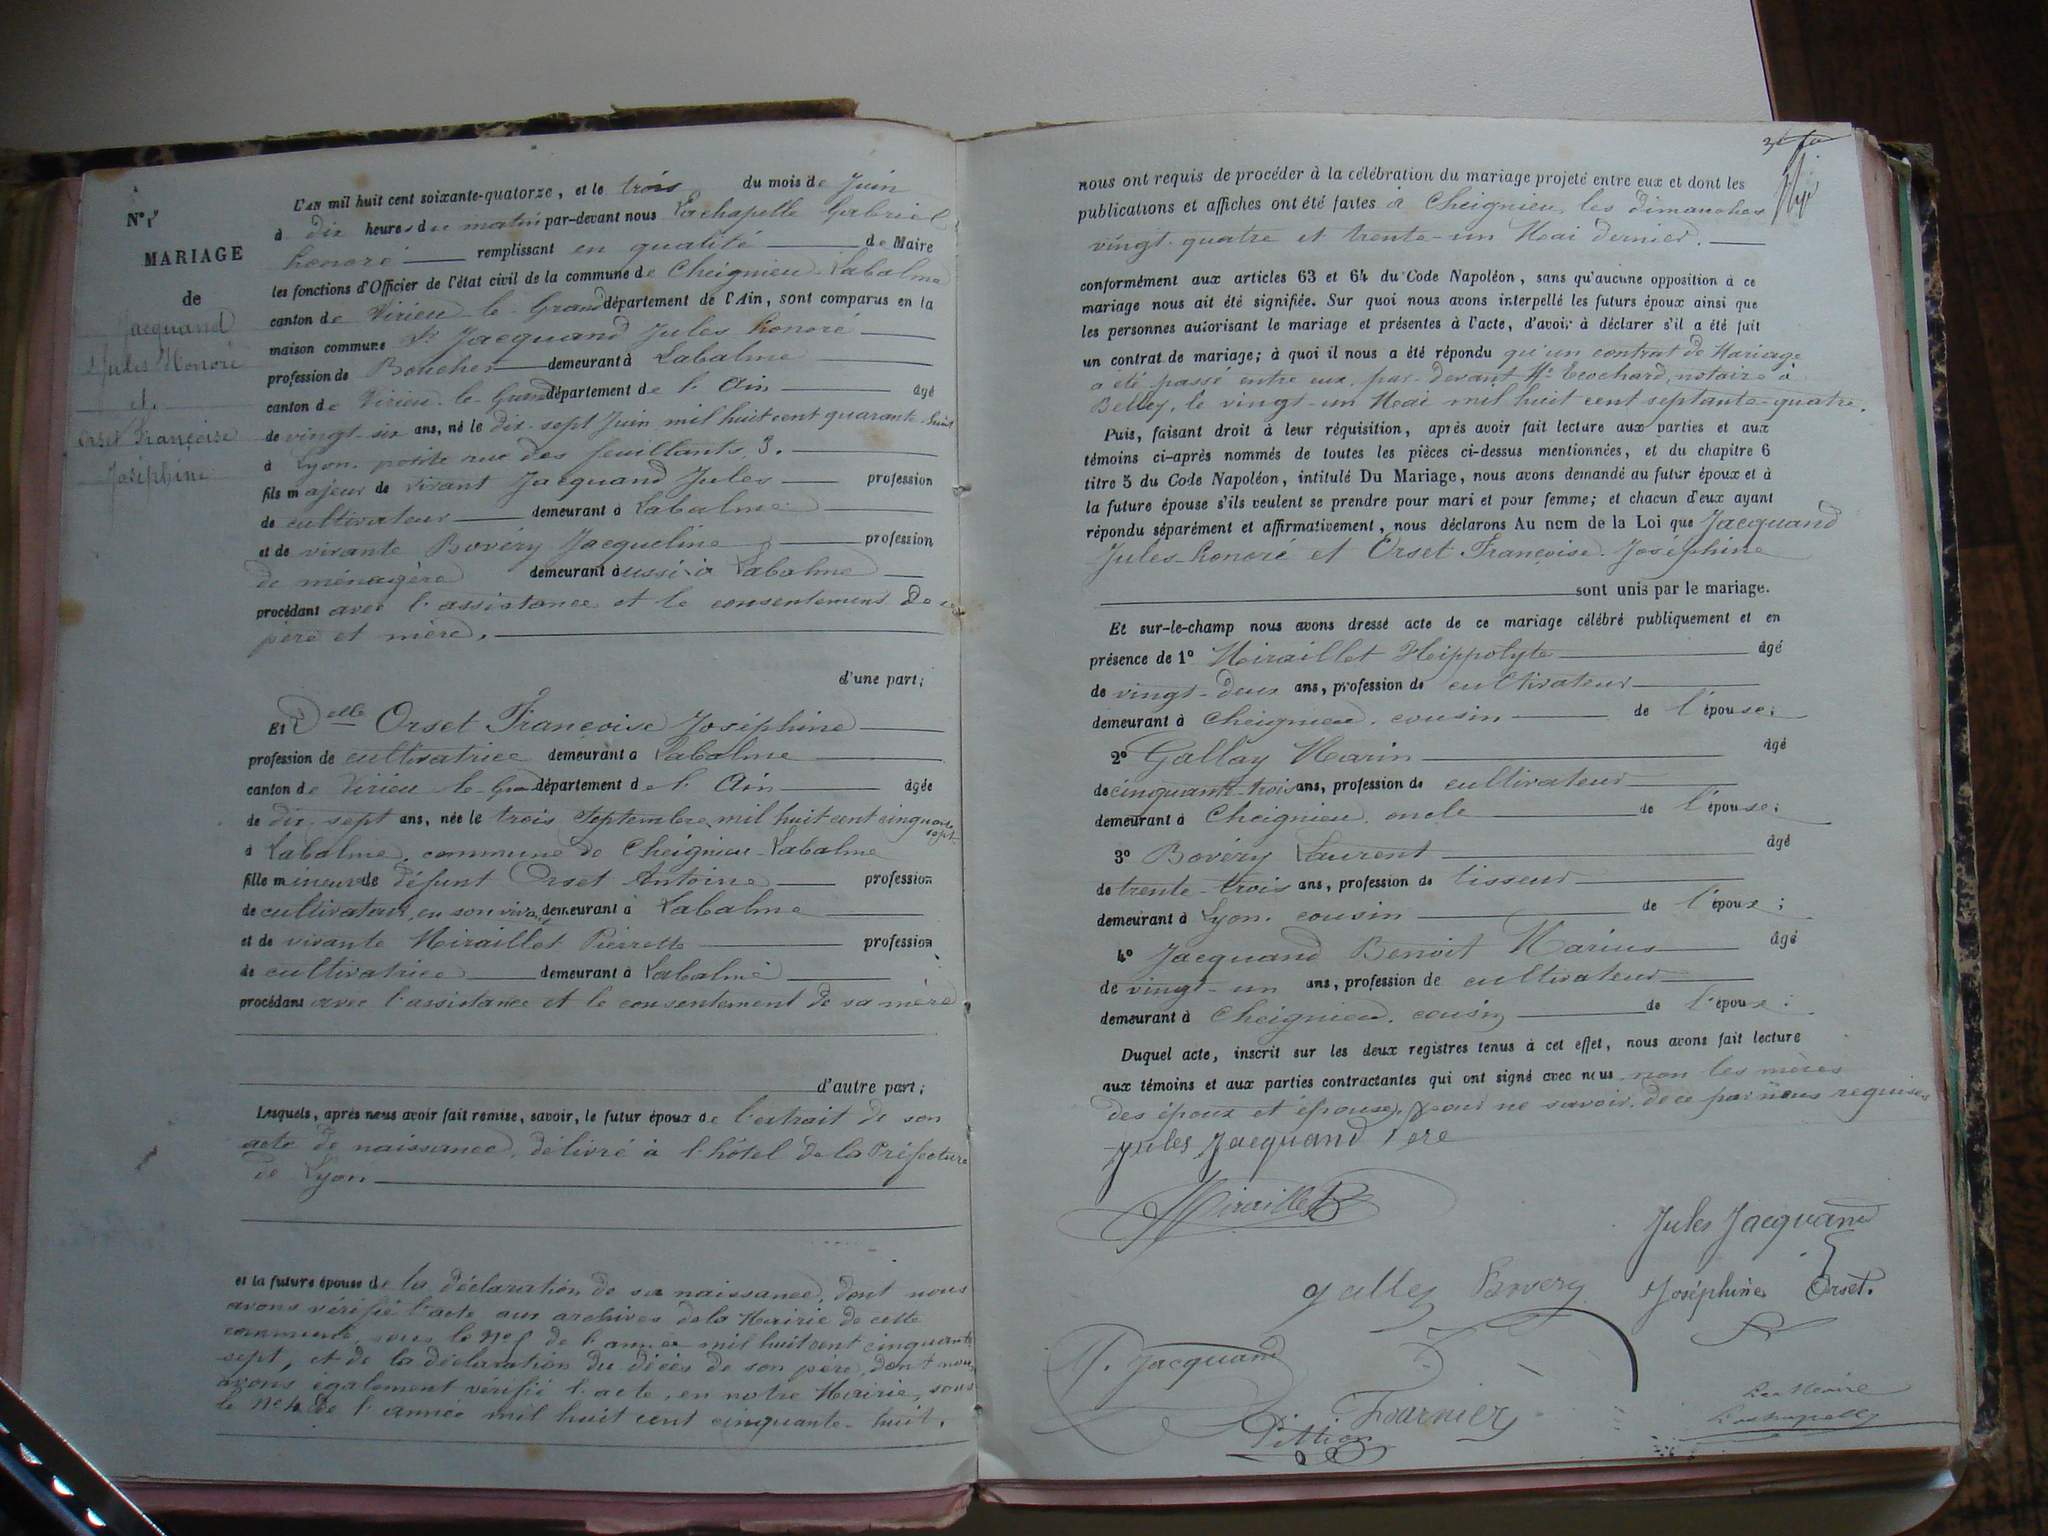 N° 1er
MARIAGE
de
Jacquand
Jules Honoré
et
Orset Françoise
Joséphine
L'AN mil huit cent soixante-quatorze, et le trois du mois de Juin
à dix heures du matin par-devant nous Lachapelle Gabriel
honoré remplissant en qualité de Maire
les fonctions d'Officier de l'état civil de la commune de Cheignieu-Labalme
canton de Virieu-le-Grand département de l'Ain, sont comparus en la
maison commune Sr Jacquand Jules honoré
profession de Boucher demeurant à Labalme
canton de Virieu-le-Grand département de l'Ain âgé
de vingt-six ans, né le dix-sept Juin mil huit cent quarante-huit
à Lyon, petite rue des feuillants, 3.
fils majeur de vivant Jacquand Jules profession
de cultivateur demeurant à Labalme
et de vivante Bovéry Jacqueline profession
de ménagère demeurant aussi à Labalme
procédant avec l'assistance et le consentement de ses
père et mère.
d'une part;
Et Delle Orset Françoise Joséphine
profession de cultivatrice demeurant à Labalme
canton de Virieu-le-Grand département de l'Ain âgée
de dix-sept ans, née le trois Septembre mil huit cent cinquante
sept
à Labalme, commune de Cheignieu-Labalme
fille mineure de défunt Orset Antoine profession
de cultivateur, en son vivant demeurant à Labalme
et de vivante Miraillet Pierrette profession
de cultivatrice demeurant à Labalme
procédant avec l'assistance et le consentement de sa mère
d'autre part;
Lesquels, après nous avoir fait remise, savoir, le futur époux de l'extrait de son
acte de naissance, délivré à l'hôtel de la Préfecture
de Lyon
et la future épouse de la déclaration de sa naissance, dont nous
avons vérifié l'acte aux archives de la Mairie de cette
commune, sous le N° de l'année mil huit cent cinquante
sept, et de la déclaration du décès de son père, dont nous
avons également vérifié l'acte, en notre Mairie, sous
le N° 4 de l'année mil huit cent cinquante-huit.
nous ont requis de procéder à la célébration du mariage projeté entre eux et dont les
publications et affiches ont été faites à Cheignieu, les dimanches
vingt-quatre et trente-un Mai dernier.
conformément aux articles 63 et 64 du Code Napoléon, sans qu'aucune opposition à ce
mariage nous ait été signifiée. Sur quoi nous avons interpellé les futurs époux ainsi que
les personnes autorisant le mariage et présentes à l'acte, d'avoir à déclarer s'il a été fait
un contrat de mariage; à quoi il nous a été répondu qu'un contrat de Mariage
a été passé entre eux, par-devant Me Ecochard, notaire à
Belley, le vingt-un Mai mil huit cent septante-quatre.
Puis, faisant droit à leur réquisition, après avoir fait lecture aux parties et aux
témoins ci-après nommés de toutes les pièces ci-dessus mentionnées, et du chapitre 6
titre 5 du Code Napoléon, intitulé Du Mariage, nous avons demandé au futur époux et à
la future épouse s'ils veulent se prendre pour mari et pour femme; et chacun d'eux ayant
répondu séparément et affirmativement, nous déclarons Au nom de la Loi que Jacquand
Jules-honoré et Orset Françoise-Joséphine
sont unis par le mariage.
Et sur-le-champ nous avons dressé acte de ce mariage célébré publiquement et en
présence de 1° Miraillet Hippolyte âgé
de vingt-deux ans, profession de cultivateur
demeurant à Cheignieu, cousin de l'épouse;
2° Gallay Marin âgé
de cinquante-trois ans, profession de cultivateur
demeurant à Cheignieu, oncle de l'épouse;
3° Bovéry Laurent âgé
de trente-trois ans, profession de tisseur
demeurant à Lyon, cousin de l'époux;
4° Jacquand Benoit Marius âgé
de vingt-un ans, profession de cultivateur
demeurant à Cheignieu, cousin de l'époux;
Duquel acte, inscrit sur les deux registres tenus à cet effet, nous avons fait lecture
aux témoins et aux parties contractantes qui ont signé avec nous, non les mères
des époux et épouse, pour ne savoir, de ce par nous requises
Jules Jacquand Père
Miraillet
Jules Jacquand
galley Bovery Joséphine Orset.
Jacquand
Fournier
Pittion
Le Maire
Lachapelle